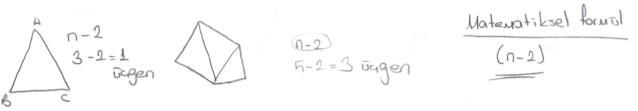 A
B
C
n-2
3-2=1
üçgen
n-2
5-2=3 üçgen
Matematiksel formül
(n-2)